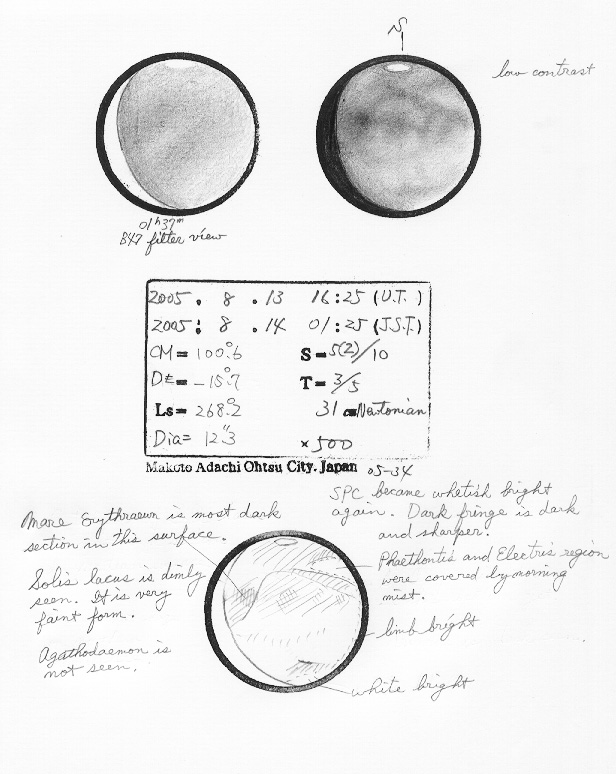 S
low contrast
01ʰ37ᵐ
B47 filter view
2005. 8 .13 16:25 (U.T.)
2005: 8 .14 01:25 (J.S.T.)
CM= 100.°6 S=5(2)/10
DE= -15.°7 T= 3/5
Ls= 268.°2 31 cm Newtonian
Dia= 12."3 ×500
Makoto Adachi Ohtsu City. Japan 05-34
SPC became whetish bright
again. Dark fringe is dark
and sharper.
Mare Erythraeum is most dark
section in this surface.
Phaethontis and Electris region
were covered by morning
mist.
Solis lacus is dimly
seen. It is very
faint form.
limb bright
Agathodaemon is
not seen.
white bright